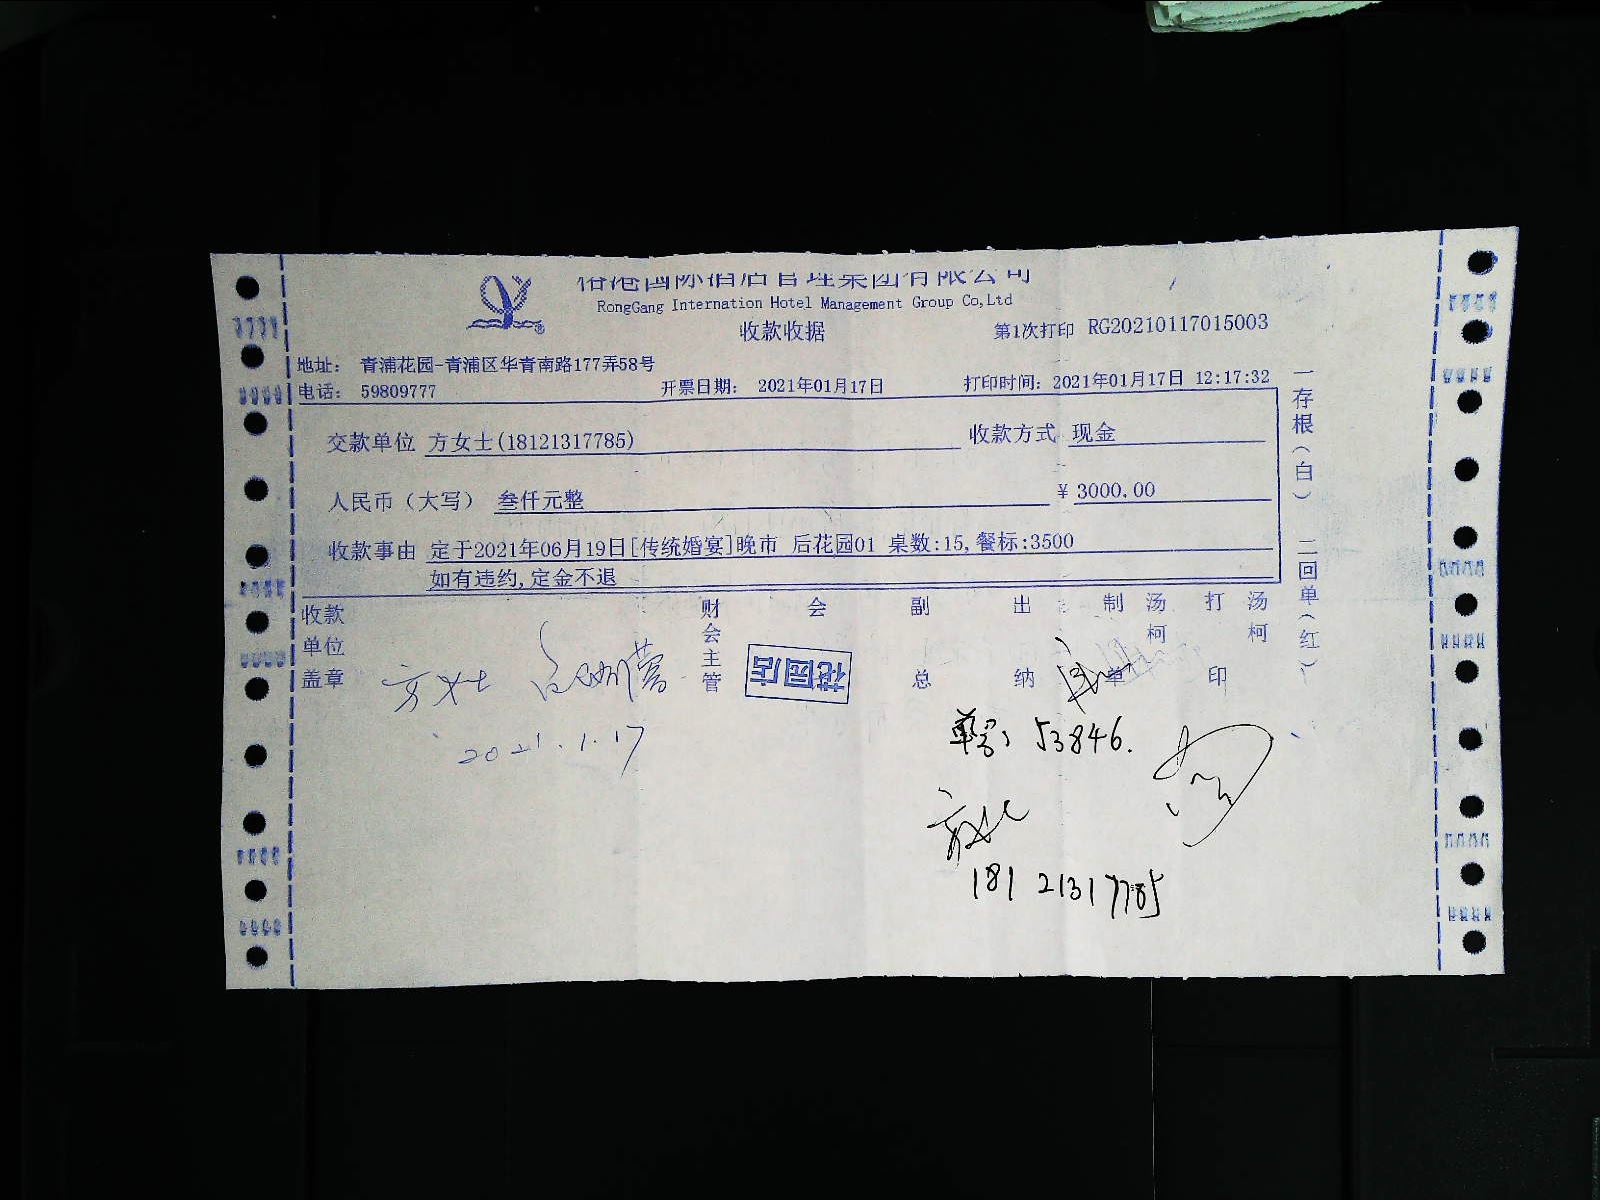 国际酒店管理集团有限公司
RongGang Internation Hotel Management Group Co,Ltd
收款收据
第1次打印 RG20210117015003
地址： 青浦花园-青浦区华青南路177弄58号
电话： 59809777 开票日期： 2021年01月17日 打印时间：2021年01月17日 12:17:32
交款单位 方女士(18121317785) 收款方式 现金
人民币（大写） 叁仟元整 ¥ 3000.00
收款事由 定于2021年06月19日[传统婚宴]晚市 后花园01 桌数:15,餐标:3500
如有违约,定金不退
一存根（白） 二回单（红）
收款单位盖章
财会主管
会
副总
出纳
制单
汤柯
打印
汤柯
花园店
方女士
2021.1.17
单号: 53846.
方女士
18121317785